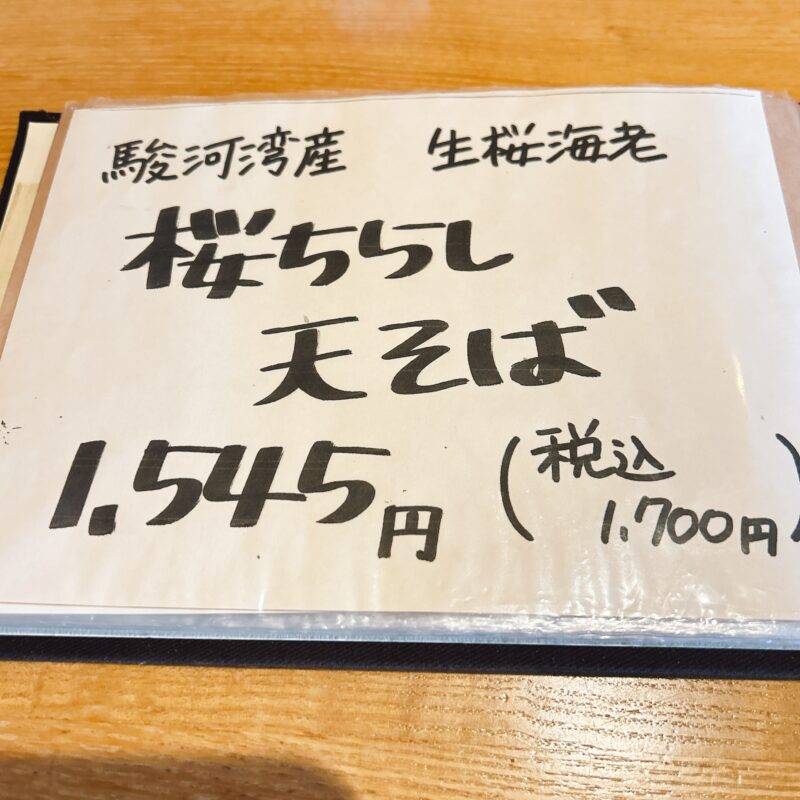 駿河湾産　生桜海老
桜ちらし
天そば
1.545円（税込
1.700円）